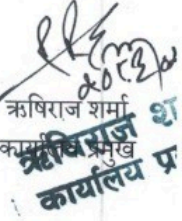 ऋषिराज शर्मा
कार्यालय प्रमुख
ऋषिराज श
कार्यालय प्र